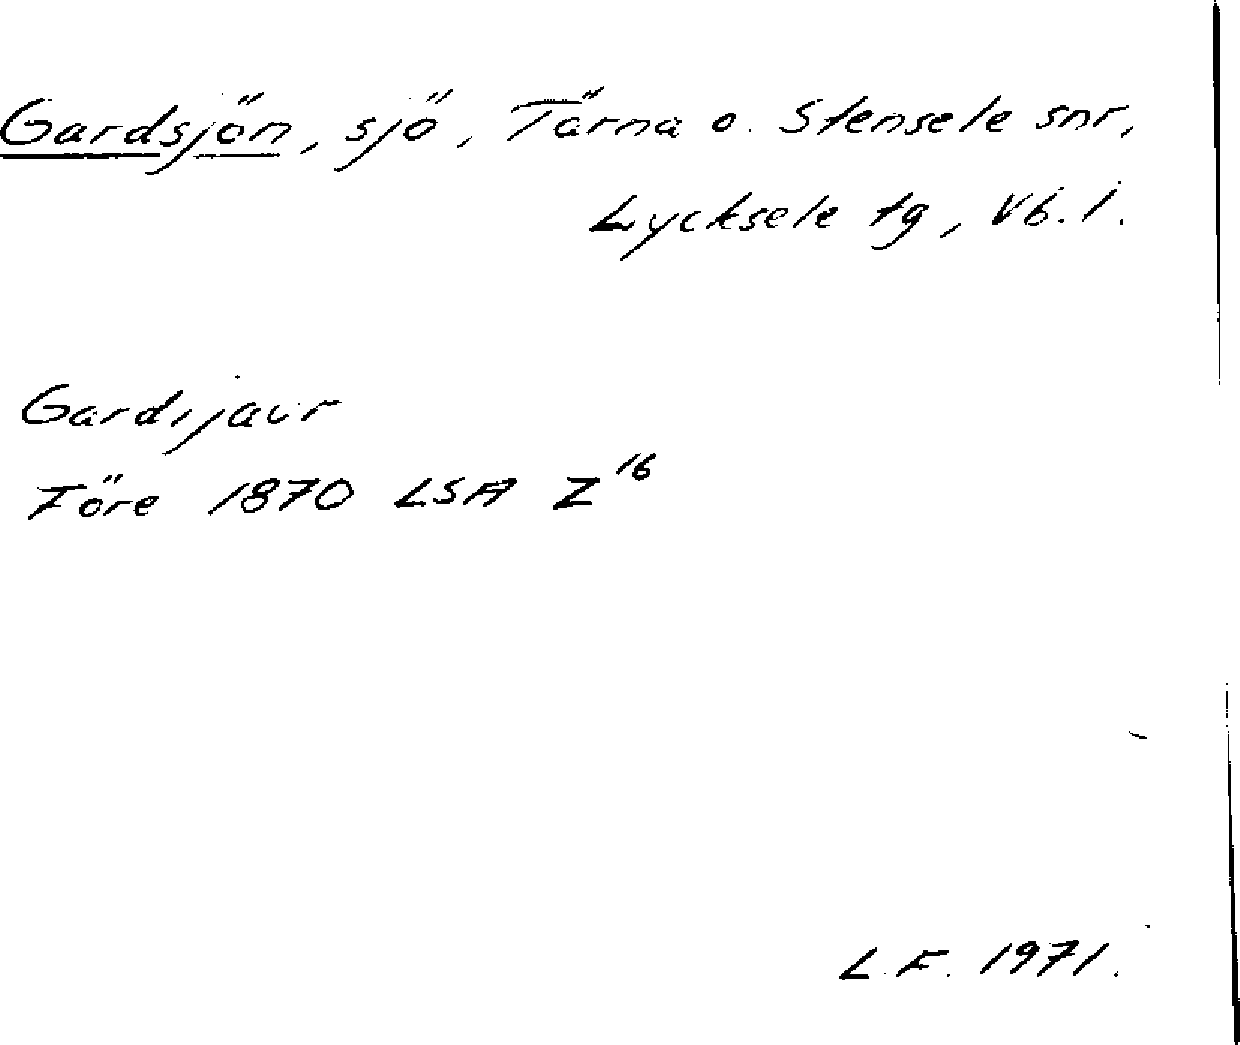 Gardsjön, sjö, Tärna o. Stensele snr,
Lycksele tg, Vb. l.
Gardijaur
Före 1870 LSA Z 16
L. F. 1971.